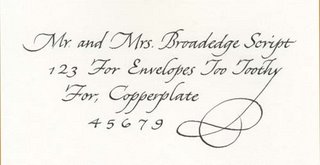 Mr and Mrs. Broadedge Script
123 For Envelopes Too Toothy
For, Copperplate
45679